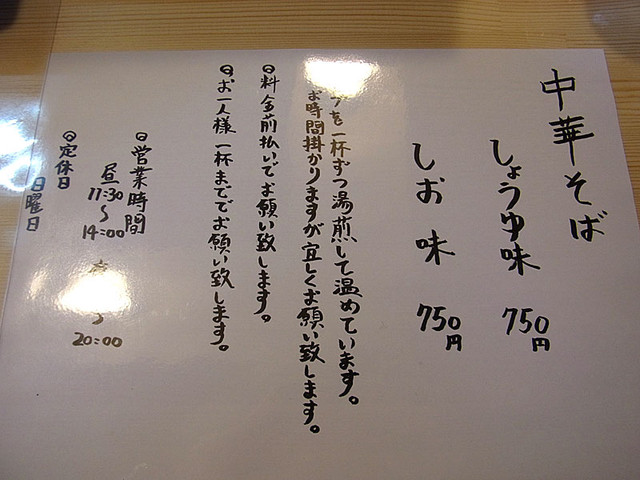 中華そば
しょうゆ味 750円
しお味 750円
プを一杯ずつ湯煎して温めています。
お時間掛かりますが宜しくお願い致します。
◎料金前払いでお願い致します。
◎お一人様一杯まででお願い致します。
◎営業時間
昼 11:30〜14:00
〜20:00
◎定休日
日曜日